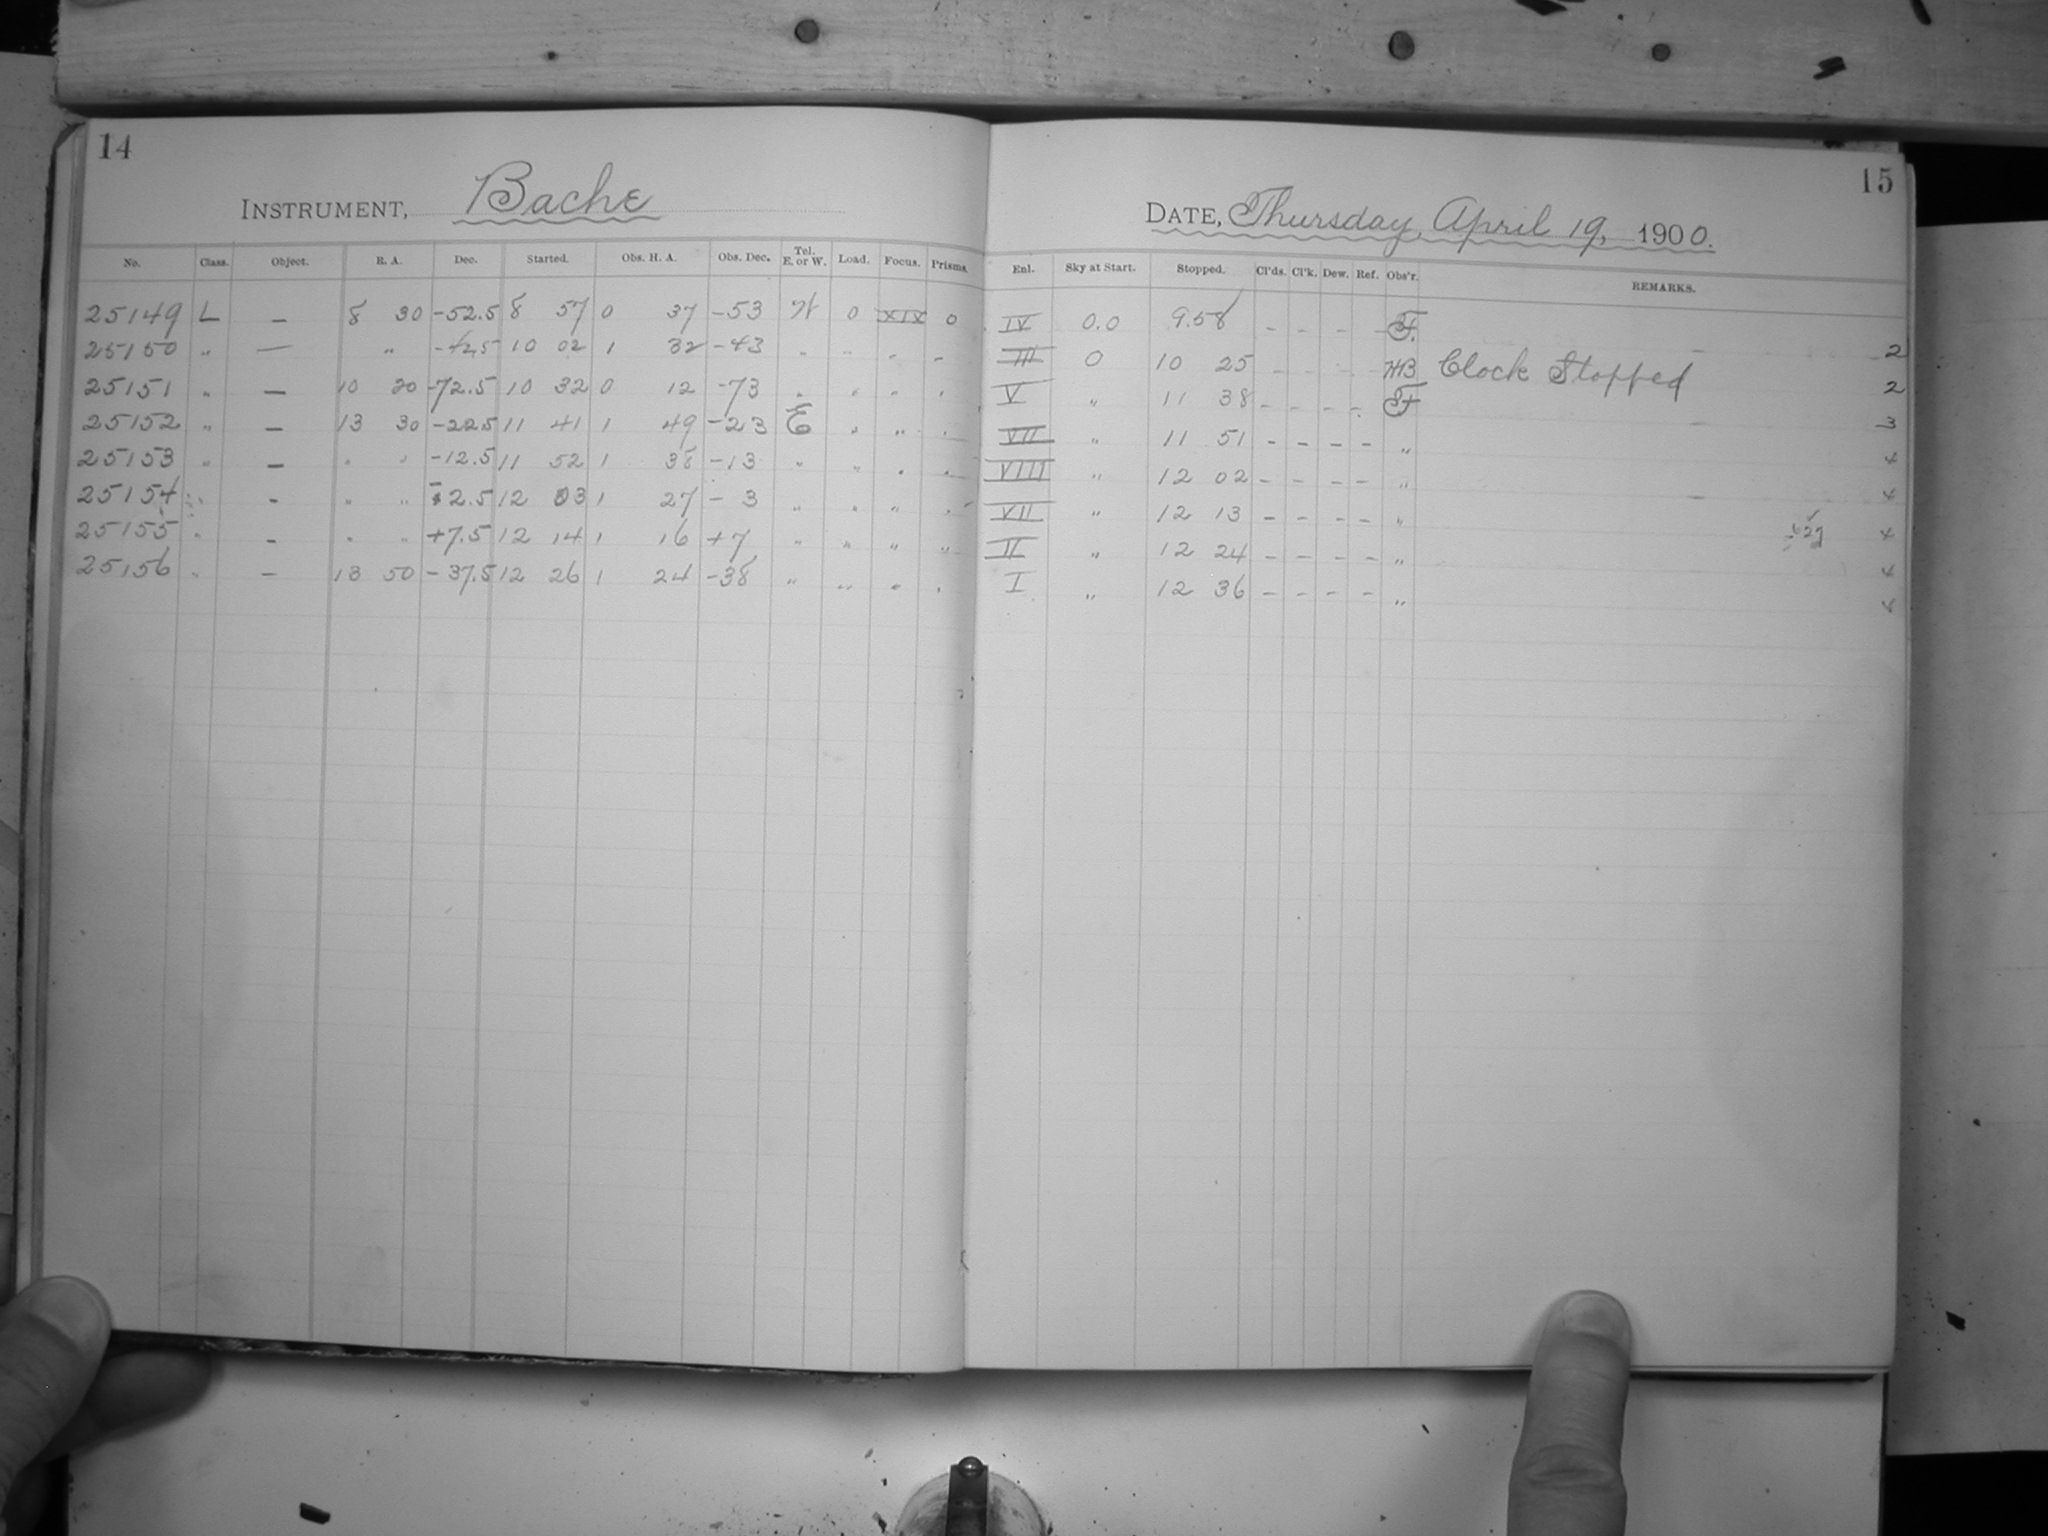 14
INSTRUMENT, Bache
No. Class. Object. R. A. Dec. Started. Obs. H. A. Obs. Dec. Tel. E. or W. Load. Focus. Prisms.
25149 L — 8 30 -52.5 8 57 0 37 -53 W 0 XIX 0
25150 " — " -42.5 10 02 1 32 -43 " " " "
25151 " — 10 20 -72.5 10 32 0 12 -73 " " " "
25152 " — 13 30 -22.5 11 41 1 49 -23 E " " "
25153 " — " " -12.5 11 52 1 38 -13 " " " "
25154 " - " " -2.5 12 03 1 27 - 3 " " " "
25155 " - " " +7.5 12 14 1 16 +7 " " " "
25156 " - 13 50 -37.5 12 26 1 24 -38 " " " "
15
DATE, Thursday, April 19, 1900.
Enl. Sky at Start. Stopped. Cl'ds. Cl'k. Dew. Ref. Obs'r. REMARKS.
IV 0.0 9.58 - - - - F.
III 0 10 25 - - - - HB Clock Stopped 2
V " 11 38 - - - - F 2
VII " 11 51 - - - - " 3
VIII " 12 02 - - - - " 4
VII " 12 13 - - - - " 4
II " 12 24 - - - - " 4
I " 12 36 - - - - " 4